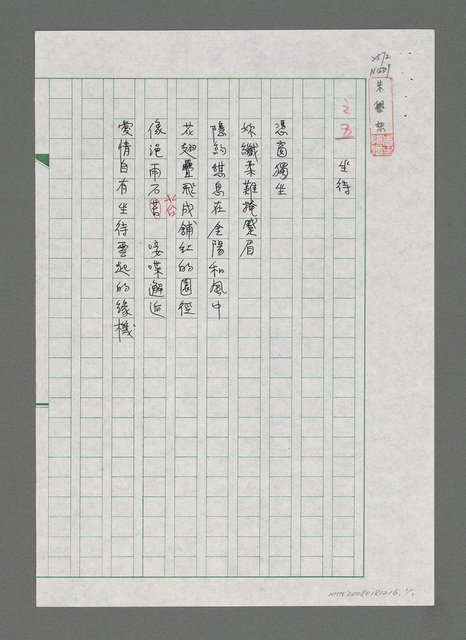 之五
坐待
憑窗獨坐
妳纖柔難掩蹙眉
隱約棲息在金陽和風中
花翅疊飛成舖紅的園徑
像浥雨石苔 唼喋邂逅
愛情自有坐待雲起的緣機
NMTL20080181216, 1/1